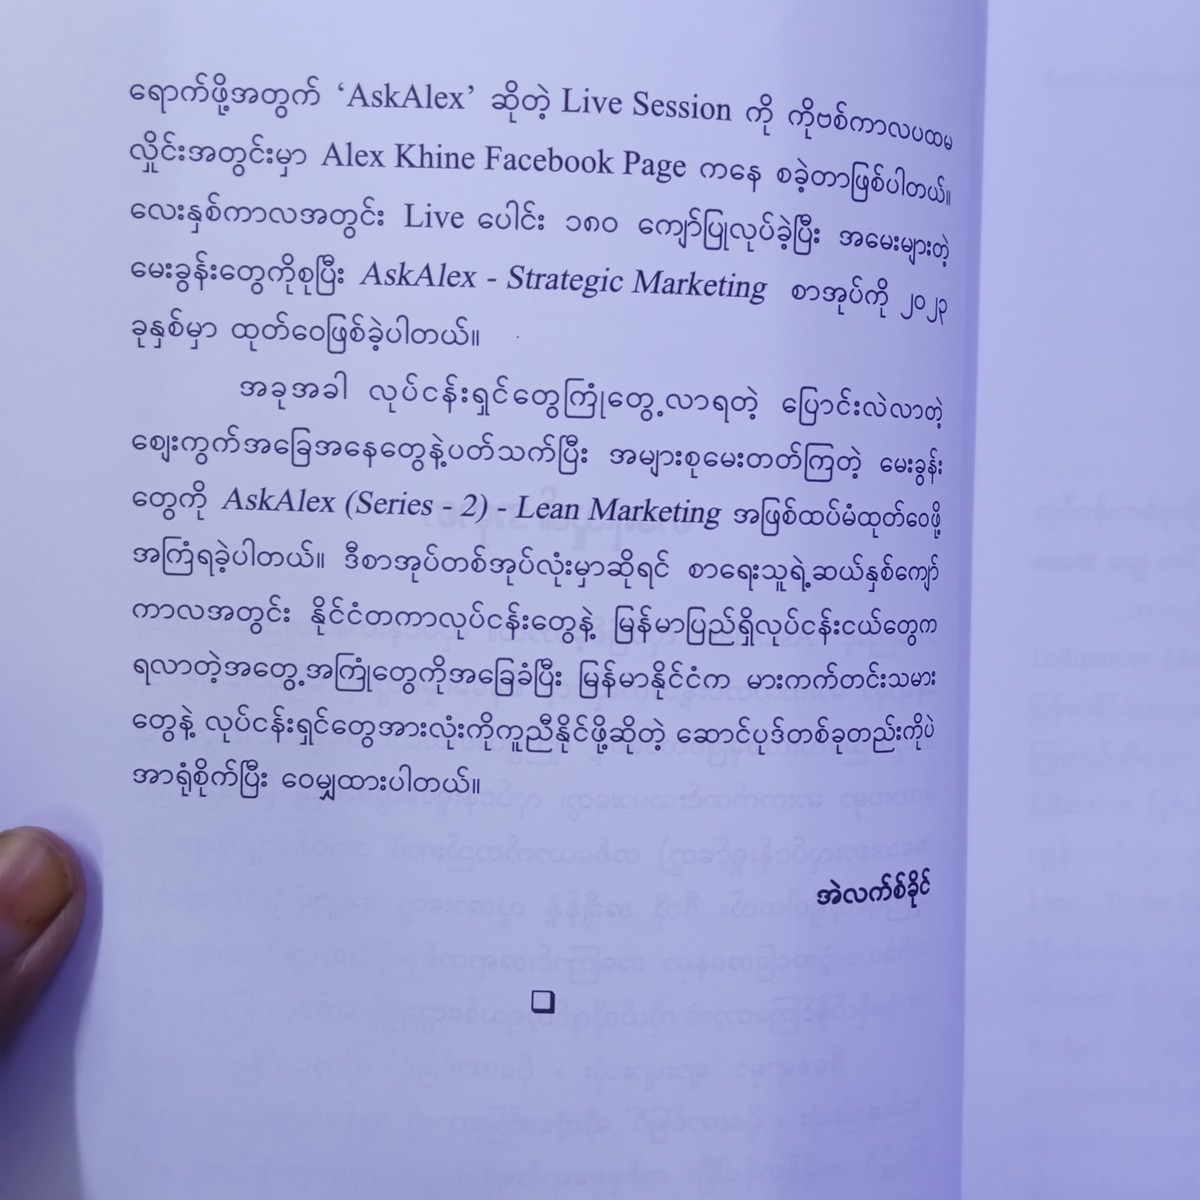 ရောက်ဖို့အတွက် ‘AskAlex’ ဆိုတဲ့ Live Session ကို ကိုဗစ်ကာလပထမ
လှိုင်းအတွင်းမှာ Alex Khine Facebook Page ကနေ စခဲ့တာဖြစ်ပါတယ်။
လေးနှစ်ကာလအတွင်း Live ပေါင်း ၁၈၀ ကျော်ပြုလုပ်ခဲ့ပြီး အမေးများတဲ့
မေးခွန်းတွေကိုစုပြီး AskAlex - Strategic Marketing စာအုပ်ကို ၂၀၂၃
ခုနှစ်မှာ ထုတ်ဝေဖြစ်ခဲ့ပါတယ်။
အခုအခါ လုပ်ငန်းရှင်တွေကြုံတွေ့လာရတဲ့ ပြောင်းလဲလာတဲ့
ဈေးကွက်အခြေအနေတွေနဲ့ပတ်သက်ပြီး အများစုမေးတတ်ကြတဲ့ မေးခွန်း
တွေကို AskAlex (Series - 2) - Lean Marketing အဖြစ်ထပ်မံထုတ်ဝေဖို့
အကြံရခဲ့ပါတယ်။ ဒီစာအုပ်တစ်အုပ်လုံးမှာဆိုရင် စာရေးသူရဲ့ဆယ်နှစ်ကျော်
ကာလအတွင်း နိုင်ငံတကာလုပ်ငန်းတွေနဲ့ မြန်မာပြည်ရှိလုပ်ငန်းငယ်တွေက
ရလာတဲ့အတွေ့အကြုံတွေကိုအခြေခံပြီး မြန်မာနိုင်ငံက မားကက်တင်းသမား
တွေနဲ့ လုပ်ငန်းရှင်တွေအားလုံးကိုကူညီနိုင်ဖို့ဆိုတဲ့ ဆောင်ပုဒ်တစ်ခုတည်းကိုပဲ
အာရုံစိုက်ပြီး ဝေမျှထားပါတယ်။
အဲလက်စ်ခိုင်